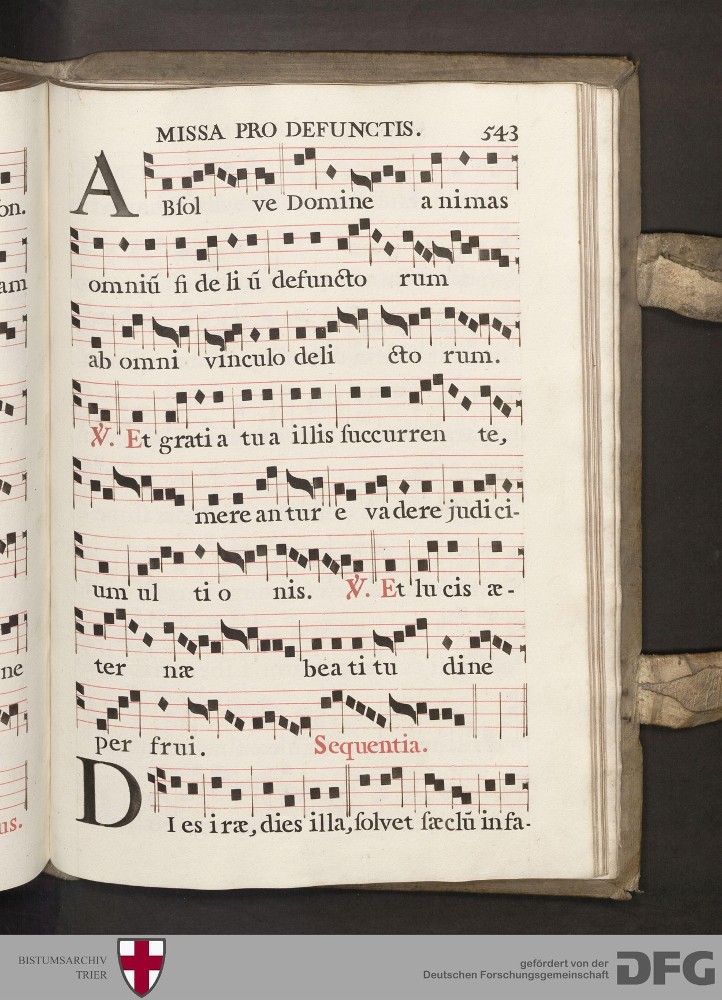 MISSA PRO DEFUNCTIS. 543
ABſol ve Domine animas
on.
omniū fideliū defuncto rum
am
ab omni vinculo deli cto rum.
℣. Et gratia tua illis ſuccurren te,
mereantur e vadere judici-
um ul tio nis. ℣. Et lucis æ-
ter næ beatitu dine
ne
per frui. Sequentia.
DIes iræ, dies illa, ſolvet ſæclū in fa-
us.
BISTUMSARCHIV
TRIER
gefördert von der
Deutschen Forschungsgemeinschaft
DFG